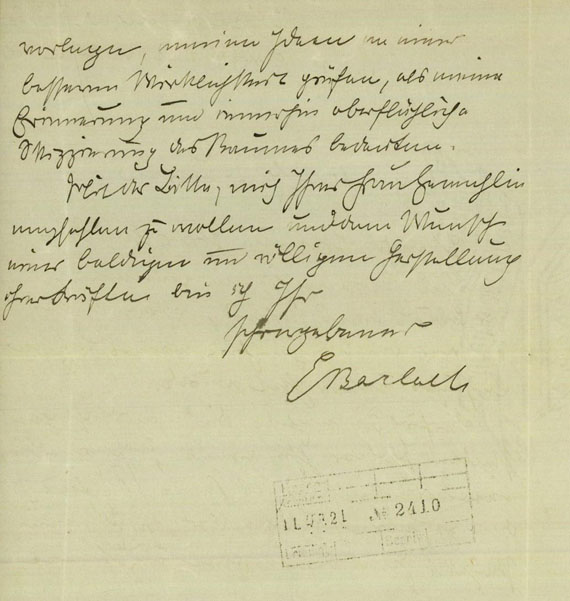 vorliegen, meine Ideen an einer
besseren Wirklichkeit prüfen, als meine
Erinnerung und immerhin oberflächliche
Skizzierung des Raumes bedeuten.
Mit der Bitte, mich Ihrer Frau Gemahlin
empfehlen zu wollen und dem Wunsch
einer baldigen und völligen Herstellung
ihrer Kräfte bin ich Ihr
sehr ergebener
EBarlach
21 № 2410